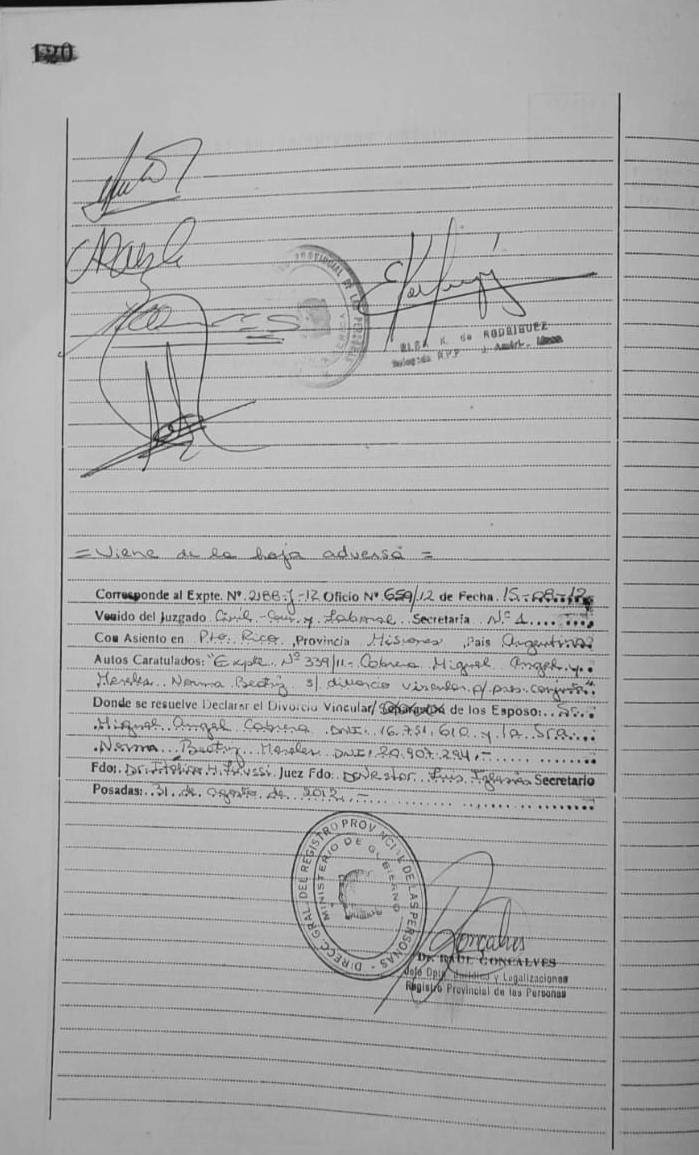 120
PROVINCIAL DE LAS PERSONAS
K. de RODRIGUEZ
= Viene de la hoja adversa =
Corresponde al Expte. Nº. 2188-J-12 Oficio Nº 659/12 de Fecha. 15-08-12
Venido del Juzgado Civil-Com. y Laboral Secretaria Nº 1
Con Asiento en Pto. Rico Provincia Misiones País Argentina
Autos Caratulados: "Expte. Nº 339/11.- Cabrera Miguel Angel y
Norma Beatriz s/ divorcio vincular p/ pres. conjunta"
Donde se resuelve Declarar el Divorcio Vincular/ Separación de los Esposo: Sr.
Miguel Angel Cabrera DNI. 16.751.610 y la Sra.
Norma Beatriz DNI. 20.907.294.-
Fdo: Dr. Juez Fdo: Dr. Nestor Luis Iglesias Secretario
Posadas: 31 de agosto de 2012.-
DIRECC. GRAL. DEL REGISTRO PROVINCIAL DE LAS PERSONAS
MINISTERIO DE GOBIERNO
Goncalves
Dr. RAUL GONCALVES
Jefe Dpto. Jurídica y Legalizaciones
Registro Provincial de las Personas